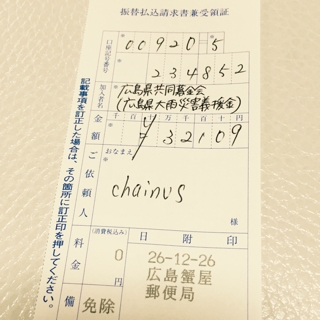 振替払込請求書兼受領証
口座記号番号
00920-5
234852
加入者名
広島県共同募金会
(広島県大雨災害義援金)
金額
千 百 十 万 千 百 十 円
¥32109
おなまえ
ご依頼人
chainus
様
料金
(消費税込み)
0
円
日附印
26-12-26
広島蟹屋
郵便局
備
免除
記載事項を訂正した場合は、その箇所に訂正印を押してください。